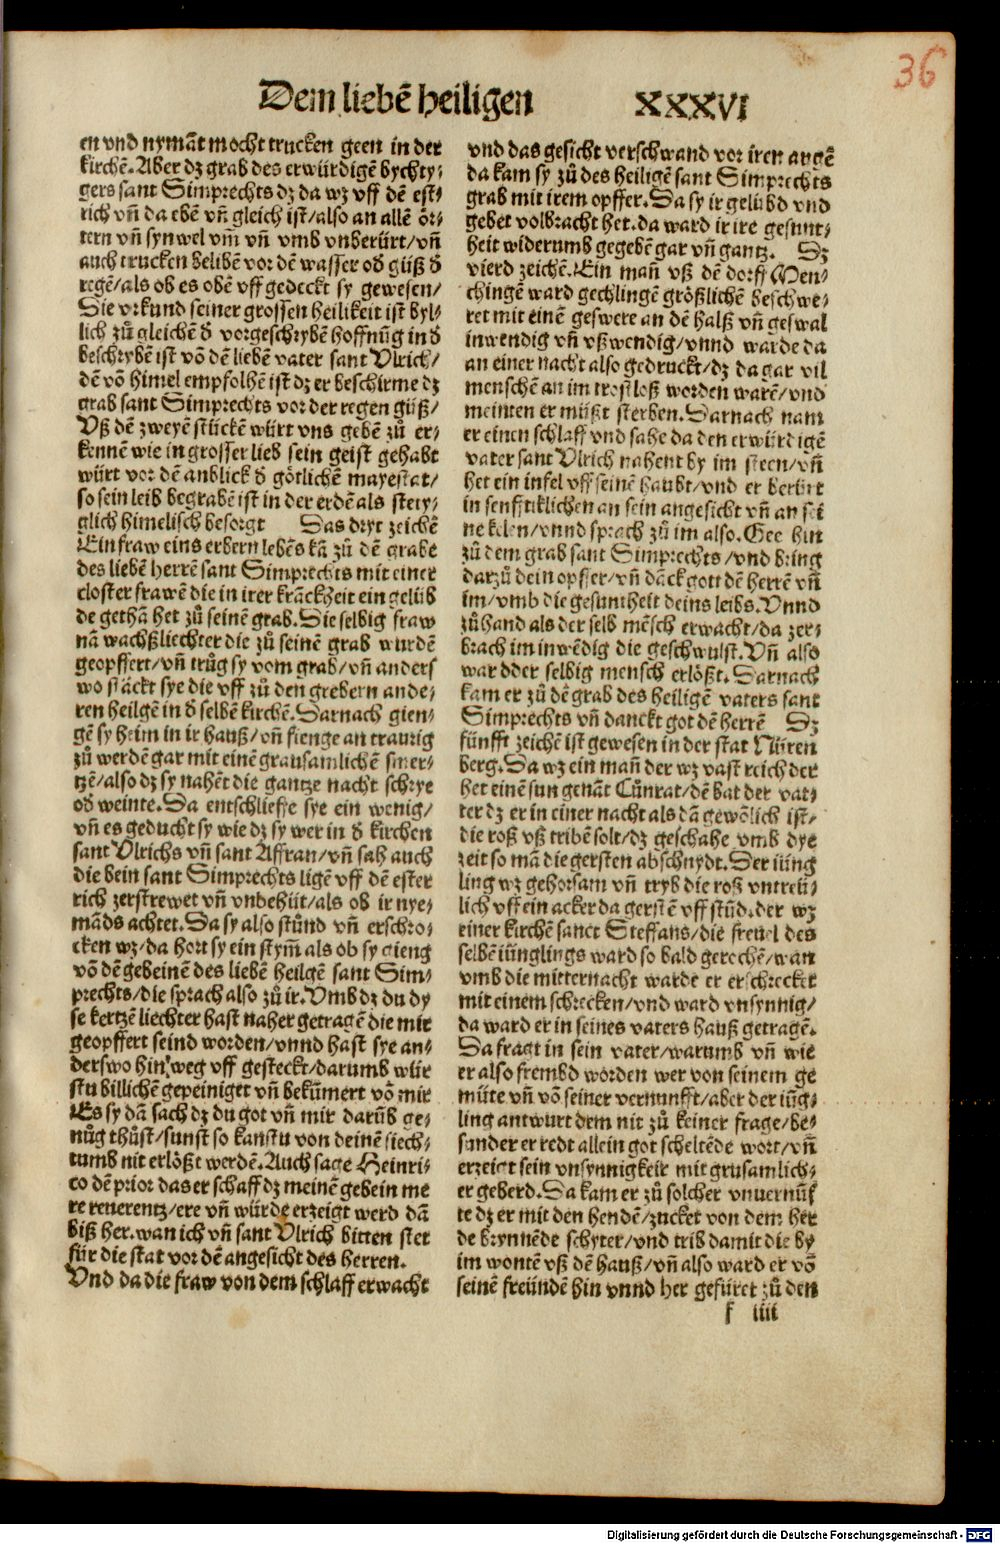 36
Dem liebē heiligen XXXVI
en vnd nymāt mocht trucken geen in der
kirchē. Aber dz grab des erwürdigē bychty⸗
gers sant Simprechts dz da wz vff dē est⸗
rich vñ da ebē vñ gleich ist/also an allē ör⸗
tern vñ synwel vm̄ vñ vmb vnberürt/vñ
auch trucken belibē vor dē wasser od̕ güß d̕
regē/als ob es obē vff gedeckt sy gewesen/
Die vrkund seiner grossen heilikeit ist byl⸗
lich zů gleichē d̕ vorgeschrybē hoffnūg in d̕
beschrybē ist vō dē liebē vater sant Vlrich/
dē vō himel empfolhē ist dz er beschirme dz
grab sant Simprechts vor der regen güß/
Vß dē zweyē stückē würt vns gebē zů er⸗
kennē wie in grosser lieb sein geist gehabt
würt vor dē anblick d̕ götlichē mayestat/
so sein leib begrabē ist in der erdē als stety⸗
glich himelisch besorgt Das dryt zeichē
Ein fraw eins erbern lebēs kā zů dē grabe
des liebē herrē sant Simprechts mit einer
closter frawē die in irer krāckheit ein gelüb
de gethā het zů seinē grab. Die selbig fraw
nā wachßliechter die zů seinē grab wurdē
geopffert/vñ trůg sy vom grab/vñ anders
wo stāckt sye die vff zů den grebern ande⸗
ren heilgē in d̕ selbē kirchē. Darnach gien⸗
gē sy heim in ir hauß/vñ fienge an traurig
zů werdē gar mit einē grausamlichē smer⸗
tzē/also dz sy nahēt die gantze nacht schrye
od̕ weinte. Da entschlieffe sye ein wenig/
vñ es geducht sy wie dz sy wer in d̕ kirchen
sant Vlrichs vñ sant Affran/vñ sah auch
die bein sant Simprechts ligē vff dē ester
rich zerstrewet vñ vnbehüt/als ob ir nye⸗
māds achtet. Da sy also stūnd vñ erschro⸗
cken wz/da hort sy ein stym̄ als ob sy gieng
vō dē gebeinē des liebē heilgē sant Sim⸗
prechts/die sprach also zů ir. Vmb dz du dy
se kertzē liechter hast naher getragē die mir
geopffert seind worden/vnnd hast sye an⸗
derswo hin weg vff gesteckt/darumb wür
stu billichē gepeiniget vñ bekūmert vō mir
Es sy dā sach dz du got vñ mir darūb ge⸗
nůg thůst/sunst so kanstu von deinē siech⸗
tumb nit erlößt werdē. Auch sage Heinri⸗
co dē prior das er schaff dz meinē gebein me
re reuerentz/ere vñ würde erzeigt werd dā
biß her. wan ich vñ sant Vlrich bitten stet
für die stat vor dē angesicht des herren.
Vnd da die fraw von dem schlaff erwacht
vnd das gesicht verschwand vor iren augē
da kam sy zů des heiligē sant Simprechts
grab mit irem opffer. Da sy ir gelübd vnd
gebet volbracht het. da ward ir ire gesunt⸗
heit widerumb gegebē gar vñ gantz. Dz
vierd zeichē. Ein mañ vß dē dorff Men⸗
chingē ward gechlingē größlichē beschwe⸗
ret mit einē geswere an dē halß vñ geswal
inwendig vñ vßwendig/vnnd warde da
an einer nacht also gedruckt/dz da gar vil
menschē an im trostloß worden warē/vnd
meinten er müßt sterben. Darnach nam
er einen schlaff vnd sahe da den erwürdigē
vater sant Vlrich nahent by im steen/vñ
het ein infel vff seinē haubt/vnd er berürt
in senfftiklichen an sein angesicht vñ an sei
ne kelen/vnnd sprach zů im also. Gee hin
zů dem grab sant Simprechts/vnd bring
darzů dein opffer/vñ dāck gott dē herrē vñ
im/vmb die gesuntheit deins leibs. Vnnd
zůhand als der selb mēsch erwacht/da zer⸗
brach im inwēdig die geschwulst. Vñ also
war dder selbig mensch erlößt. Darnach
kam er zů dē grab des heiligē vaters sant
Simprechts vñ danckt got dē herrē Dz
fünfft zeichē ist gewesen in der stat Nüren
berg. Da wz ein mañ der wz vast reich der
het einē sun genāt Cůnrat/dē bat der vat⸗
ter dz er in einer nacht als dā gewōlich ist/
die roß vß tribē solt/dz geschahe vmb dye
zeit so mā die gersten abschnydt. Der iüng
ling wz gehorsam vñ tryb die roß vntreü⸗
lich vff ein acker da gerstē vff stůd. der wz
einer kirchē sanct Steffans/die freuel des
selbē iünglings ward so bald gerechē/wan
vmb die mitternacht warde er erschrecket
mit einem schrecken/vnd ward vnsynnig/
da ward er in seines vaters hauß getragē.
Da fragt in sein vater/warumb vñ wie
er also frembd worden wer von seinem ge
müte vñ vō seiner vernunfft/aber der iūg⸗
ling antwurt dem nit zů keiner frage/be⸗
sunder er redt allein got scheltēde wort/vñ
erzeigt sein vnsynnigkeit mit grusamlich⸗
er geberd. Da kam er zů solcher vnuernūf
te dz er mit den hendē/zucket von dem her
de brynnēde schyter/vnd trib damit die by
im wontē vß dē hauß/vñ also ward er vō
seinē freündē hin vnnd her gefüret zů den
f iiii
Digitalisierung gefördert durch die Deutsche Forschungsgemeinschaft - DFG